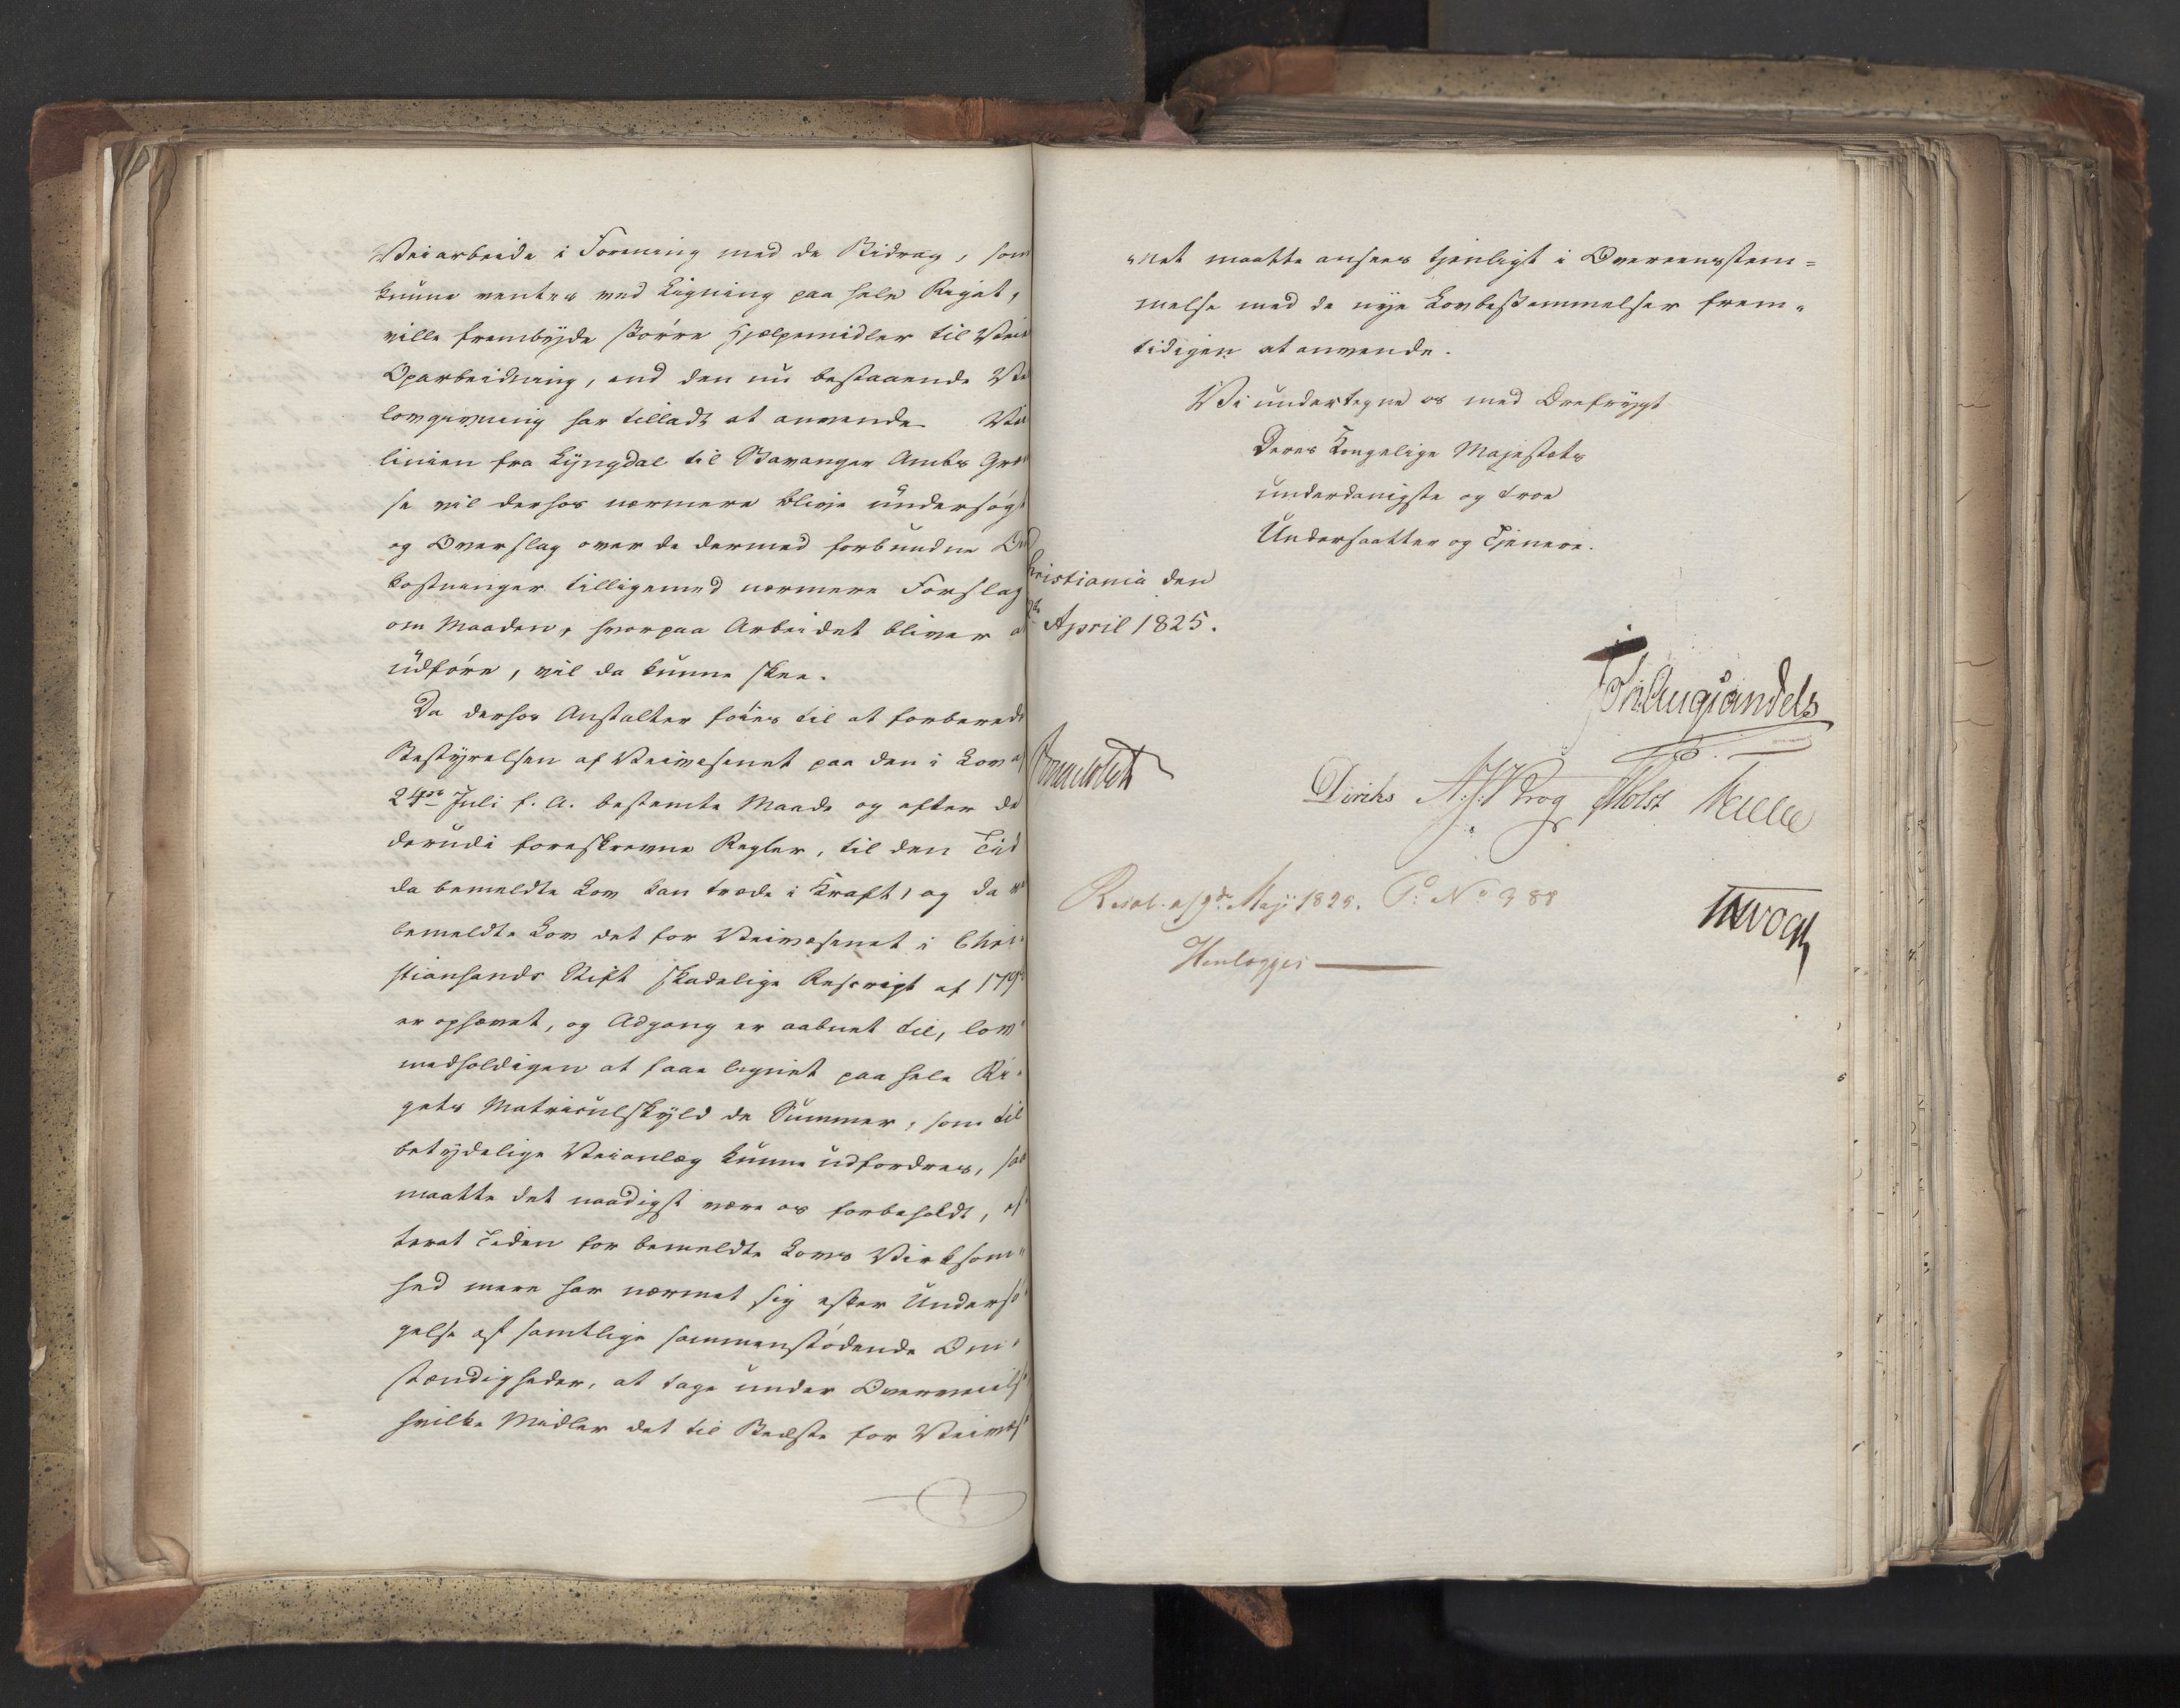 Veiarbeide i Forening med de Bidrag, som
kunne ventes ved Ligning paa hele Riget,
ville frembyde større Hjælpemidler til Veies
Oparbeidning, end den nu bestaaende Vei
lovgivning har tilladt at anvende. Vei
linien fra Lyngdal til Stavanger Amts Græn
se vil derhos nærmere blive undersøgt
og Overslag over de dermed forbundne Om
kostninger tilligemed nærmere Forslag
om Maaden, hvorpaa Arbeidet bliver at
udføre, vil da kunne skee.
Da derhos Anstalter føies til at forberede
Bestyrelsen af Veivæsenet paa den i Lov af
24de Juli f. A. bestemte Maade og efter de
derudi foreskrevne Regler, til den Tid
da bemeldte Lov kan træde i Kraft, og da ved
bemeldte Lov det for Veivæsenet i Chri-
stiansands Stift skadelige Rescript af 179
er ophævet, og Adgang er aabnet til, lov-
medholdigen at faae lignet paa hele Ri-
gets Matriculskyld de Summer, som til
betydelige Veianlæg kunne udfordres, saa
maatte det naadigst være os forbeholdt, ef
terat Tiden for bemeldte Lovs Virksom-
hed mere har nærmet sig efter Undersø-
gelse af samtlige sammenstødende Om-
stændigheder, at tage under Overveielse
hvilke Midler det til Bedste for Veivæs-
"net maatte ansees tjenligt i Overeensstem=
melse med de nye Lovbestemmelser frem-
tidigen at anvende.
Vi undertegne os med Ærefrygt
Deres Kongelige Majestæts
underdanigste og troe
Undersaatter og Tjenere.
Christiania den
April 1825.
Joh Aug Sandels
Diriks A. J. Krog PHolst
Resol. af 9de Maji 1825. P: No 988
JHVogt
Henlægges